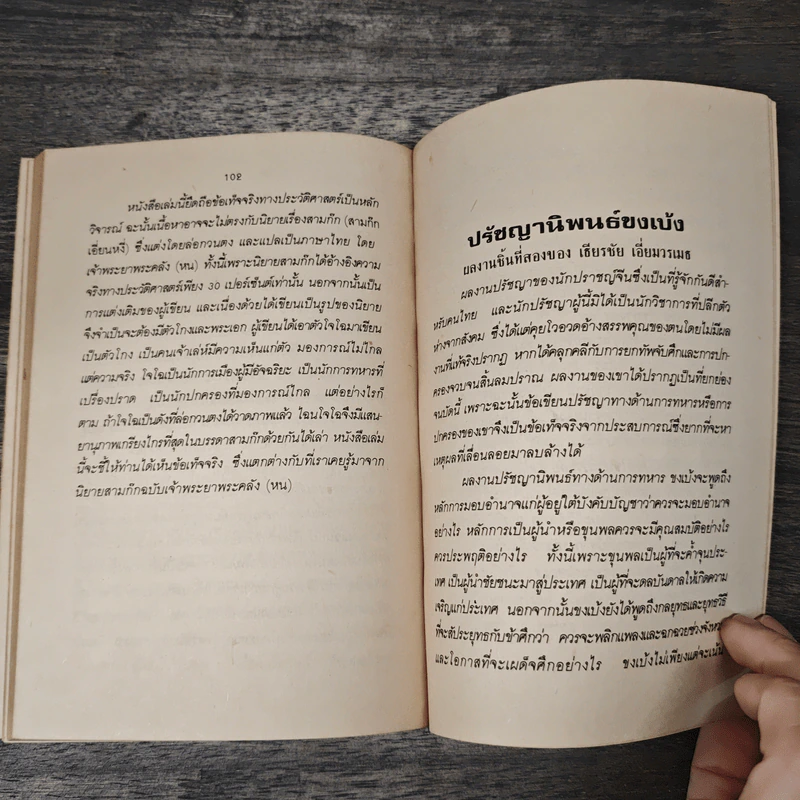 102
หนังสือเล่มนี้ยึดถือข้อเท็จจริงทางประวัติศาสตร์เป็นหลัก
วิจารณ์ ฉะนั้นเนื้อหาอาจจะไม่ตรงกับนิยายเรื่องสามก๊ก (สามก๊ก
เอี่ยนหงี) ซึ่งแต่งโดยล่อกวนตง และแปลเป็นภาษาไทย โดย
เจ้าพระยาพระคลัง (หน) ทั้งนี้เพราะนิยายสามก๊กได้อ้างอิงความ
จริงทางประวัติศาสตร์เพียง 30 เปอร์เซ็นต์เท่านั้น นอกจากนั้นเป็น
การแต่งเติมของผู้เขียน และเนื่องด้วยได้เขียนเป็นรูปของนิยาย
จึงจำเป็นจะต้องมีตัวโกงและพระเอก ผู้เขียนได้เอาตัวโจโฉมาเขียน
เป็นตัวโกง เป็นคนเจ้าเล่ห์มีความเห็นแก่ตัว มองการณ์ไม่ไกล
แต่ความจริง โจโฉเป็นนักการเมืองผู้มีอัจฉริยะ เป็นนักการทหารที่
เปรื่องปราด เป็นนักปกครองที่มองการณ์ไกล แต่อย่างไรก็
ตาม ถ้าโจโฉเป็นดังที่ล่อกวนตงได้วาดภาพแล้ว ไฉนโจโฉจึงมีแสน-
ยานุภาพเกรียงไกรที่สุดในบรรดาสามก๊กด้วยกันได้เล่า หนังสือเล่ม
นี้จะชี้ให้ท่านได้เห็นข้อเท็จจริง ซึ่งแตกต่างกับที่เราเคยรู้มาจาก
นิยายสามก๊กฉบับเจ้าพระยาพระคลัง (หน)
ปรัชญานิพนธ์ขงเบ้ง
ผลงานชิ้นที่สองของ เธียรชัย เอี่ยมวรเมธ
ผลงานปรัชญาของนักปราชญ์จีนซึ่งเป็นที่รู้จักกันดีสำ-
หรับคนไทย และนักปรัชญาผู้นี้มิได้เป็นนักวิชาการที่ปลีกตัว
ห่างจากสังคม ซึ่งได้แต่คุยโวอวดอ้างสรรพคุณของตนโดยไม่มีผล
งานที่แท้จริงปรากฏ หากได้คลุกคลีกับการยกทัพจับศึกและการปก-
ครองจวบจนสิ้นลมปราณ ผลงานของเขาได้ปรากฏเป็นที่ยกย่อง
จนบัดนี้ เพราะฉะนั้นข้อเขียนปรัชญาทางด้านการทหารหรือการ
ปกครองของเขาจึงเป็นข้อเท็จจริงจากประสบการณ์ซึ่งยากที่จะหา
เหตุผลที่เลื่อนลอยมาลบล้างได้
ผลงานปรัชญานิพนธ์ทางด้านการทหาร ขงเบ้งจะพูดถึง
หลักการมอบอำนาจแก่ผู้อยู่ใต้บังคับบัญชาว่าควรจะมอบอำนาจ
อย่างไร หลักการเป็นผู้นำหรือขุนพลควรจะมีคุณสมบัติอย่างไร
ควรประพฤติอย่างไร ทั้งนี้เพราะขุนพลเป็นผู้ที่จะค้ำจุนประ-
เทศ เป็นผู้นำชัยชนะมาสู่ประเทศ เป็นผู้ที่จะดลบันดาลให้เกิดความ
เจริญแก่ประเทศ นอกจากนั้นขงเบ้งยังได้พูดถึงกลยุทธและยุทธวิธี
ที่จะสัประยุทธกับข้าศึกว่า ควรจะพลิกแพลงและฉกฉวยช่วงจังหวะ
และโอกาสที่จะเผด็จศึกอย่างไร ขงเบ้งไม่เพียงแต่จะเน้น